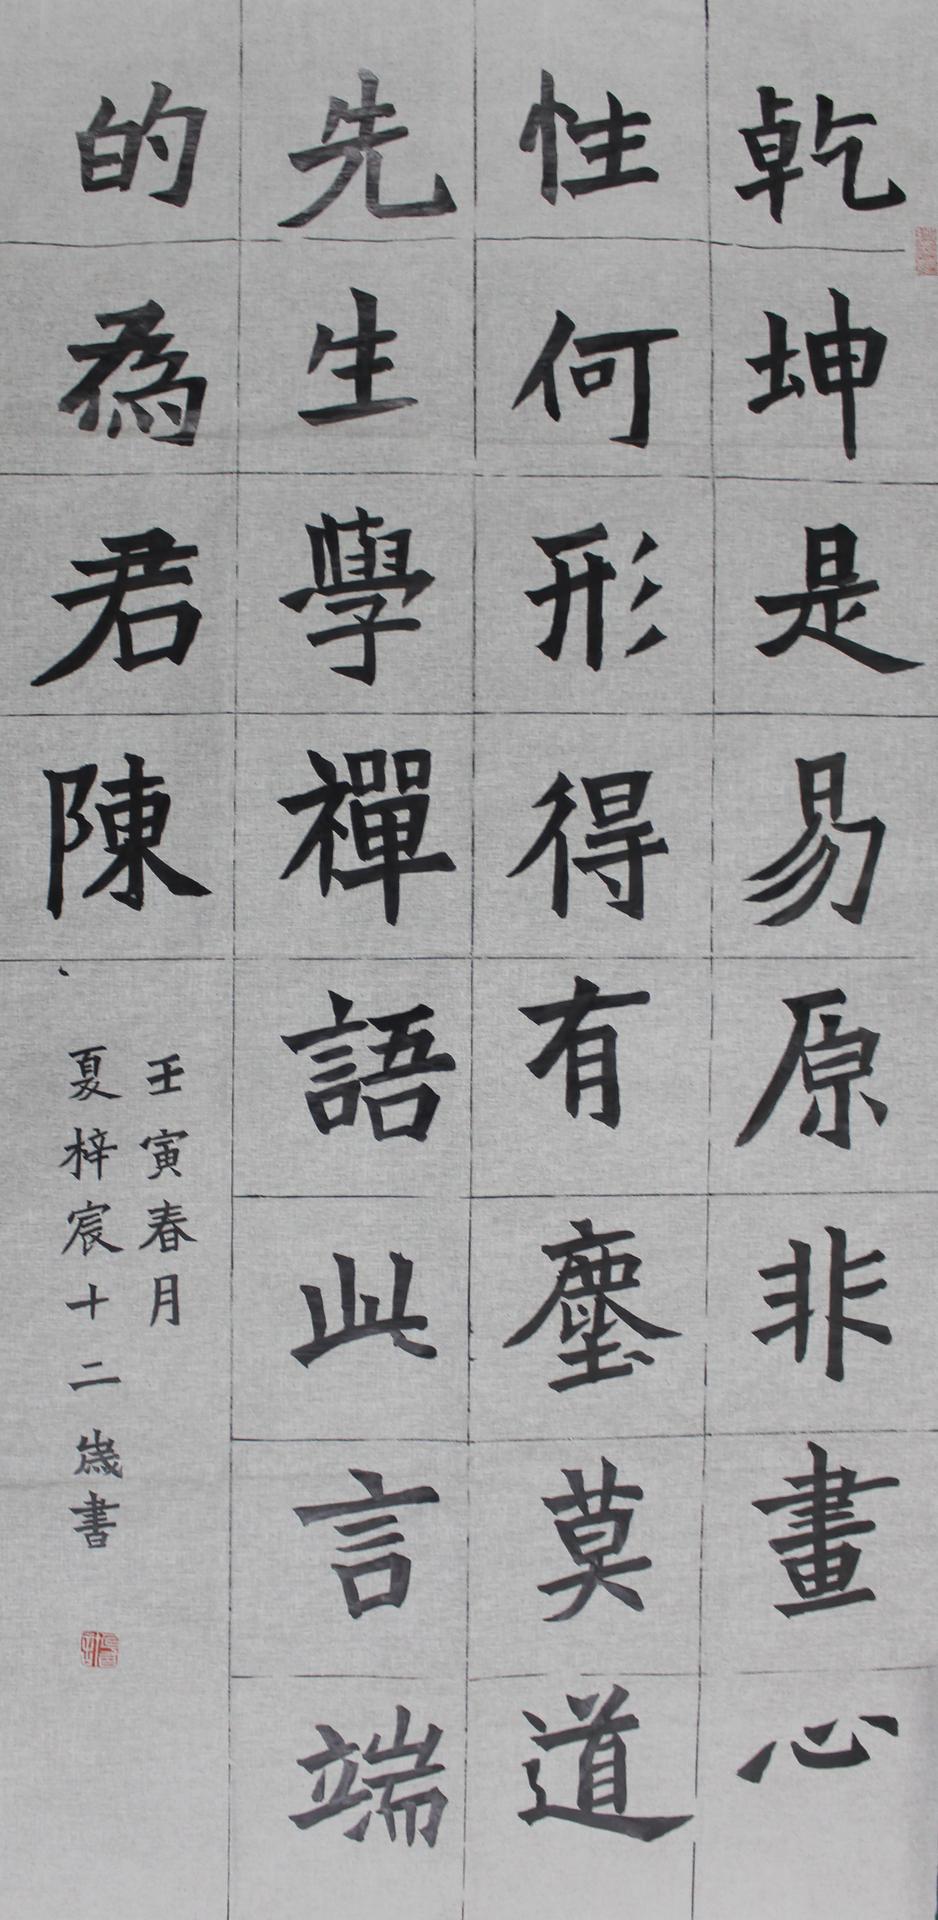 乾坤是易原非畫心
性何形得有塵莫道
先生學禪語此言端
的為君陳
壬寅春月
夏梓宸十二歲書